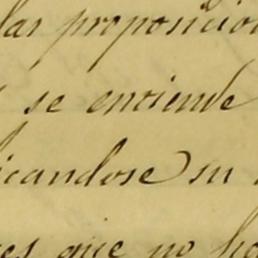 las proposicion
se entiende
icandose su
es que no ha